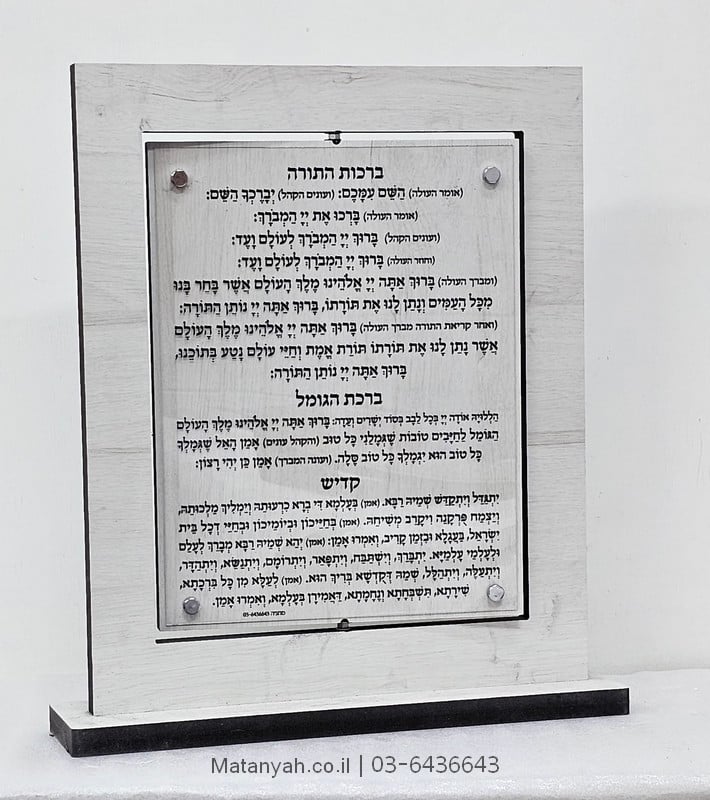 ברכות התורה
(אומר העולה) הַשֵּׁם עִמָּכֶם: (ועונים הקהל) יְבָרֶכְךָ הַשֵּׁם:
(אומר העולה) בָּרְכוּ אֶת יְיָ הַמְבֹרָךְ:
(ועונים הקהל) בָּרוּךְ יְיָ הַמְבֹרָךְ לְעוֹלָם וָעֶד:
(וחזר העולה) בָּרוּךְ יְיָ הַמְבֹרָךְ לְעוֹלָם וָעֶד:
(ומברך העולה) בָּרוּךְ אַתָּה יְיָ אֱלֹהֵינוּ מֶלֶךְ הָעוֹלָם אֲשֶׁר בָּחַר בָּנוּ
מִכָּל הָעַמִּים וְנָתַן לָנוּ אֶת תּוֹרָתוֹ, בָּרוּךְ אַתָּה יְיָ נוֹתֵן הַתּוֹרָה:
(ואחר קריאת התורה מברך העולה) בָּרוּךְ אַתָּה יְיָ אֱלֹהֵינוּ מֶלֶךְ הָעוֹלָם
אֲשֶׁר נָתַן לָנוּ אֶת תּוֹרָתוֹ תּוֹרַת אֱמֶת וְחַיֵּי עוֹלָם נָטַע בְּתוֹכֵנוּ,
בָּרוּךְ אַתָּה יְיָ נוֹתֵן הַתּוֹרָה:
ברכת הגומל
הַלְלוּיָהּ אוֹדֶה יְיָ בְּכָל לֵבָב בְּסוֹד יְשָׁרִים וְעֵדָה: בָּרוּךְ אַתָּה יְיָ אֱלֹהֵינוּ מֶלֶךְ הָעוֹלָם
הַגּוֹמֵל לְחַיָּבִים טוֹבוֹת שֶׁגְּמָלַנִי כָּל טוּב (והקהל עונים) אָמֵן הָאֵל שֶׁגְּמָלְךָ
כָּל טוֹב הוּא יִגְמָלְךָ כָּל טוֹב סֶלָה. (ועונה המברך) אָמֵן כֵּן יְהִי רָצוֹן:
קדיש
יִתְגַּדַּל וְיִתְקַדַּשׁ שְׁמֵיהּ רַבָּא. (אמן) בְּעָלְמָא דִּי בְרָא כִרְעוּתֵהּ וְיַמְלִיךְ מַלְכוּתֵהּ,
וְיַצְמַח פֻּרְקָנֵהּ וִיקָרֵב מְשִׁיחֵהּ. (אמן) בְּחַיֵּיכוֹן וּבְיוֹמֵיכוֹן וּבְחַיֵּי דְכָל בֵּית
יִשְׂרָאֵל, בַּעֲגָלָא וּבִזְמַן קָרִיב, וְאִמְרוּ אָמֵן: (אמן) יְהֵא שְׁמֵיהּ רַבָּא מְבָרַךְ לְעָלַם
וּלְעָלְמֵי עָלְמַיָּא. יִתְבָּרַךְ, וְיִשְׁתַּבַּח, וְיִתְפָּאַר, וְיִתְרוֹמַם, וְיִתְנַשֵּׂא, וְיִתְהַדָּר,
וְיִתְעַלֶּה, וְיִתְהַלָּל, שְׁמֵהּ דְּקֻדְשָׁא בְּרִיךְ הוּא. (אמן) לְעֵלָּא מִן כָּל בִּרְכָתָא,
שִׁירָתָא, תִּשְׁבְּחָתָא וְנֶחָמָתָא, דַּאֲמִירָן בְּעָלְמָא, וְאִמְרוּ אָמֵן.
מתניה 03-6436643
Matanyah.co.il | 03-6436643